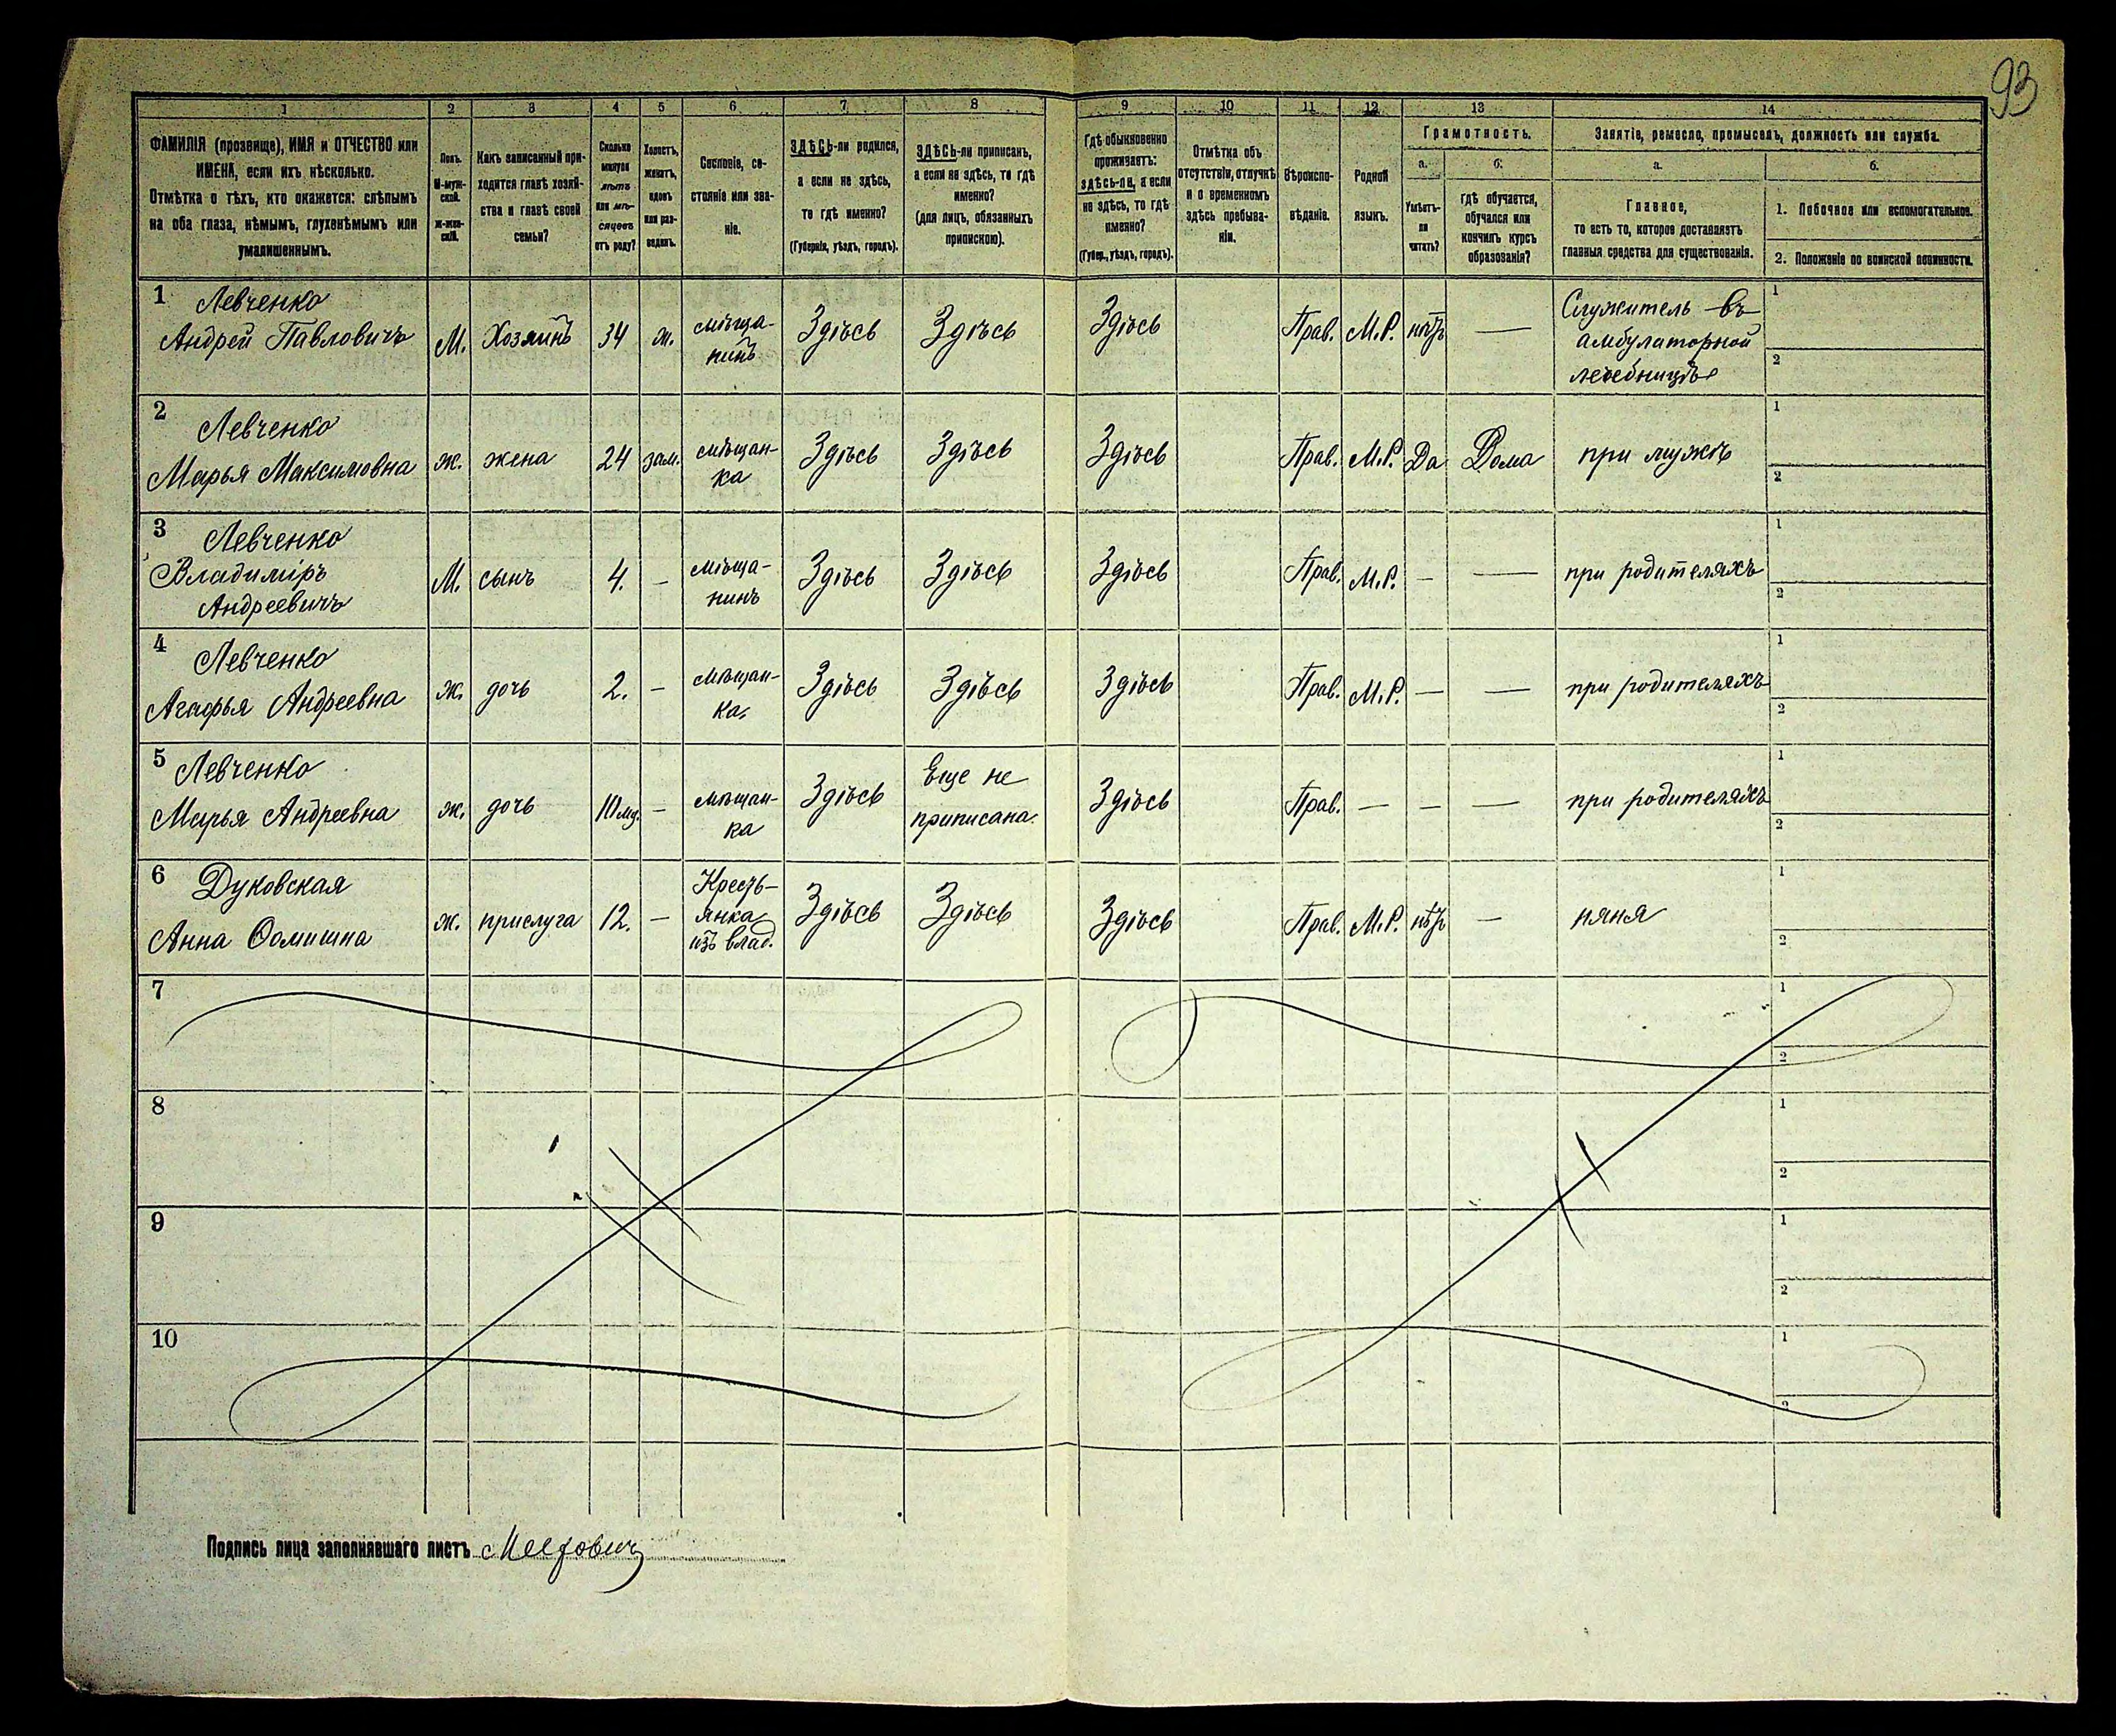 93
1 2 3 4 5 6 7 8 9 10 11 12 13 14
ФАМИЛІЯ (прозвище), ИМЯ и ОТЧЕСТВО или
ИМЕНА, если ихъ нѣсколько.
Отмѣтка о тѣхъ, кто окажется: слѣпымъ
на оба глаза, нѣмымъ, глухонѣмымъ или
умалишеннымъ.
Полъ.
М-муж-
ской.
ж-жен-
скій.
Какъ записанный при-
ходится главѣ хозяй-
ства и главѣ своей
семьи?
Сколько
минуло
лѣтъ
или мѣ-
сяцевъ
отъ роду?
Холостъ,
женатъ,
вдовъ
или раз-
веденъ.
Сословіе, со-
стояніе или зва-
ніе.
ЗДѢСЬ-ли родился,
а если не здѣсь,
то гдѣ именно?
(Губернія, уѣздъ, городъ).
ЗДѢСЬ-ли приписанъ,
а если не здѣсь, то гдѣ
именно?
(для лицъ, обязанныхъ
припискою).
Гдѣ обыкновенно
проживаетъ:
здѣсь-ли, а если
не здѣсь, то гдѣ
именно?
(Губер., уѣздъ, городъ).
Отмѣтка объ
отсутствіи, отлучкѣ
и о временномъ
здѣсь пребыва-
ніи.
Вѣроиспо-
вѣданіе.
Родной
языкъ.
Грамотность.
а.
Умѣетъ-
ли
читать?
б.
гдѣ обучается,
обучался или
кончилъ курсъ
образованія?
Занятіе, ремесло, промыселъ, должность или служба.
а.
Главное,
то есть то, которое доставляетъ
главныя средства для существованія.
б.
1. Побочное или вспомогательное.
2. Положеніе по воинской повинности.
1 Левченко
Андрей Павловичъ М. Хозяинъ 34 ж. мѣща- Здѣсь Здѣсь Здѣсь Прав. М.Р. нѣтъ — Служитель въ 1
нинъ амбулаторной
лечебницѣ 2
2 Левченко 1
Марья Максимовна ж. жена 24 зам. мѣщан- Здѣсь Здѣсь Здѣсь Прав. М.Р. Да Дома при мужѣ
ка 2
3 Левченко 1
Владиміръ М. сынъ 4. — мѣща- Здѣсь Здѣсь Здѣсь Прав. М.Р. — — при родителяхъ
Андреевичъ нинъ 2
4 Левченко 1
Агафья Андреевна ж. дочь 2. — мѣщан- Здѣсь Здѣсь Здѣсь Прав. М.Р. — — при родителяхъ
ка. 2
5 Левченко Еще не 1
Марья Андреевна ж. дочь — мѣщан- Здѣсь приписана. Здѣсь Прав. — — — при родителяхъ
ка 2
6 Дуковская Кресть- 1
Анна Ѳомишна ж. прислуга 12. — янка Здѣсь Здѣсь Здѣсь Прав. М.Р. нѣтъ — няня
изъ влад. 2
7 1
2
8 1
2
9 1
2
10 1
2
Подпись лица заполнявшаго листъ